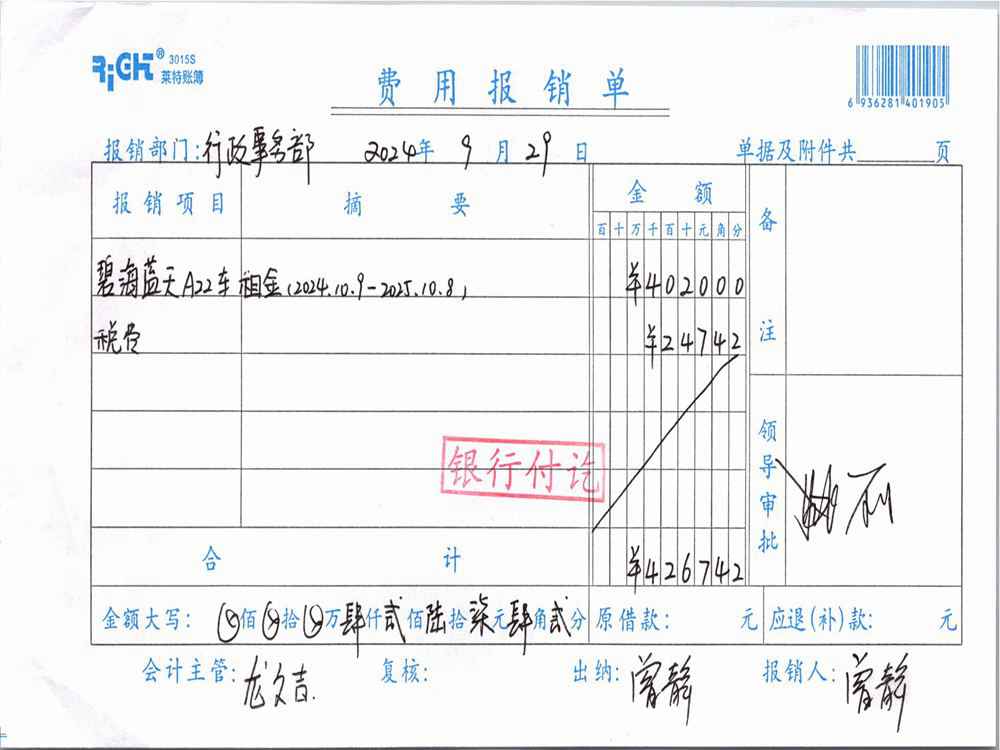 RiGHT® 3015S
莱特账簿
费用报销单
6 936281 401905
报销部门:行政事务部 2024年 9月 29日 单据及附件共 页
报销项目 摘要 金额 备注
百十万千百十元角分
碧海蓝天A22车 租金(2024.10.9-2025.10.8) ¥402000
税费 ¥24742
银行付讫
领导审批
合计 ¥426742
金额大写: 佰 拾 万肆仟贰佰陆拾柒元肆角贰分 原借款: 元 应退(补)款: 元
会计主管:龙文吉. 复核: 出纳:曾静 报销人:曾静